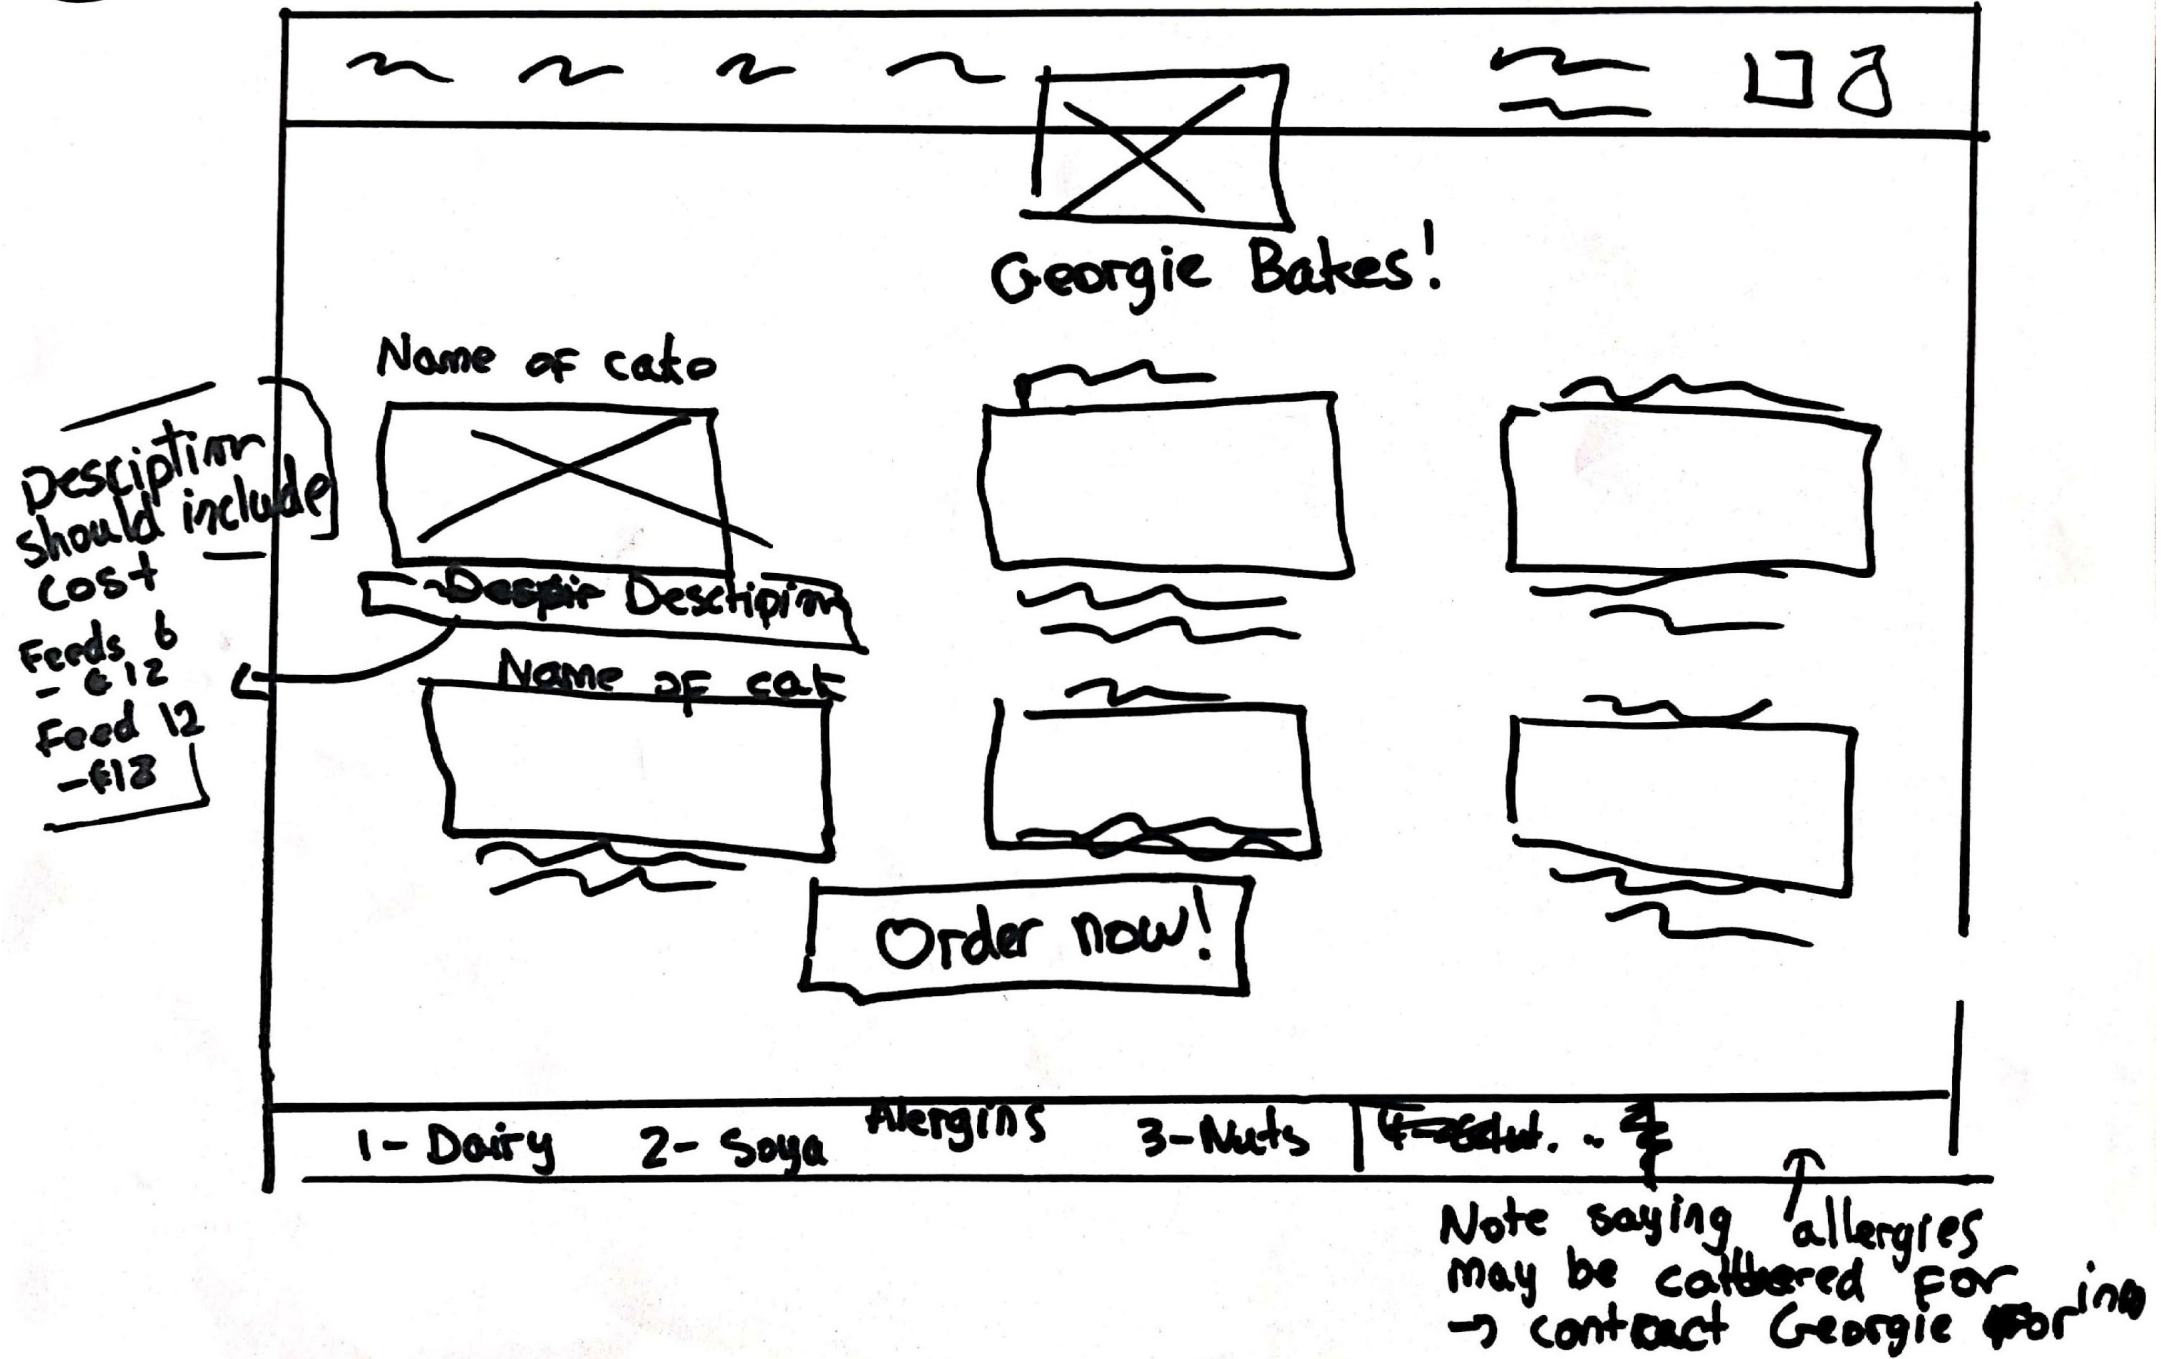 Georgie Bakes!
Name of cake
Desciption
should include
cost
Feeds 6
- €12
Feed 12
- €18
Desctipin
Name of cak
Order now!
Alergins
1- Dairy
2- Soya
3- Nuts
Note saying allergies
may be cattered for
→ contact Georgie for